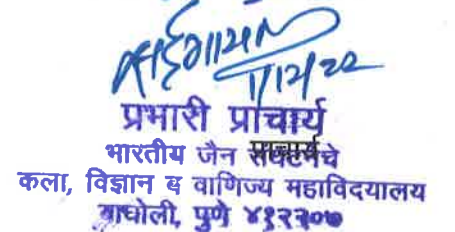 1/12/22
प्रभारी प्राचार्य
भारतीय जैन संघटनेचे
कला, विज्ञान व वाणिज्य महाविदयालय
वाघोली, पुणे ४१२२०७